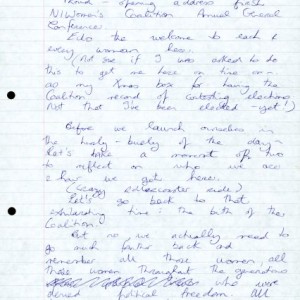 opening address
NI Women's Coalition Annual General
Conference
the welcome to each &
every woman, here.
(Not sure if I was asked to do
this to get me here on time or -
as my Xmas box for having the
Coalition record of contesting elections
Not that I've been elected - yet!)
Before we launch ourselves in
the hurly-burly of the day -
let's take a moment or two
to reflect on who we are
& how we got here.
Let's go back to that
time: the birth of the
Coalition.
But no we actually need to
go much further back and
remember all those women, all
those women throughout the generations
who were
denied political freedom. All